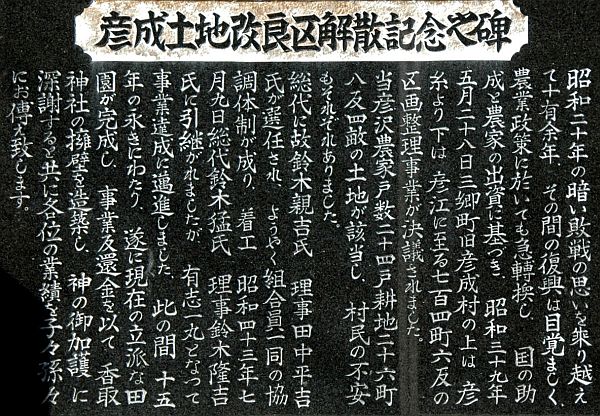 彦成土地改良区解散記念之碑
昭和二十年の暗い敗戦の思いを乗り越え
て十有余年　その間の復興は目覚ましく、
農業政策に於いても急転換し　国の助
成と農家の出資に基づき　昭和三十九年
五月二十八日三郷町旧彦成村の上は　彦
糸より下は　彦江に至る七百四町六反の
区画整理事業が決議されました。
当彦沢農家戸数二十四戸耕地二十六町
八反四畝の土地が該当し、　村民の不安
もそれぞれありました。
総代に故鈴木親吉氏　理事田中平吉
氏が選任され、ようやく組合員一同の協
調体制が成り、着工　昭和四十三年七
月九日総代鈴木猛氏　理事鈴木隆吉
氏に引継がれましたが　有志一丸となつて
事業達成に邁進しました。　此の間　十五
年の永きにわたり、　遂に現在の立派な田
園が完成し、　事業及還金を以て　香取
神社の擁壁を造築し　神の御加護に
深謝すると共に各位の業績を子々孫々
にお傳え致します。